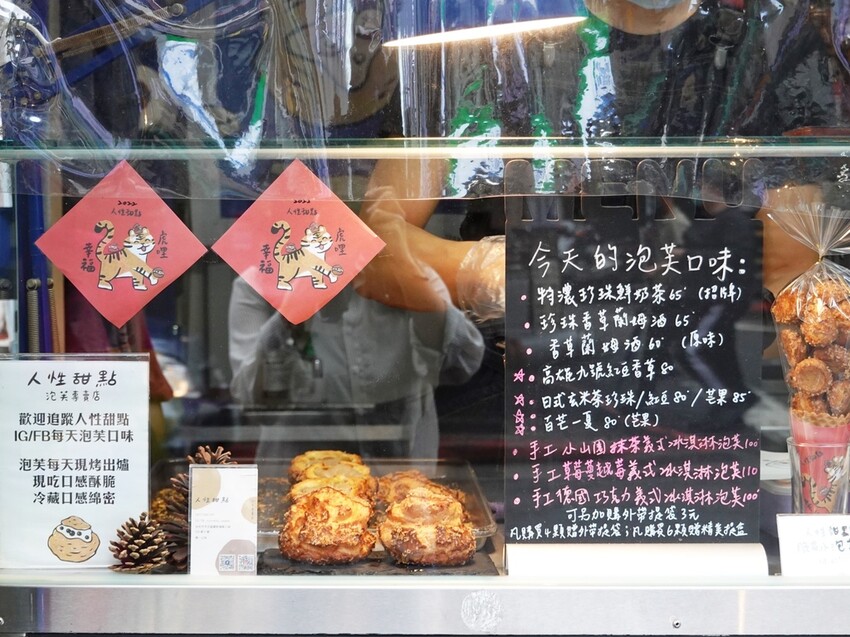 2022
人性甜點
虎哩
幸福
2022
人性甜點
虎哩
幸福
人性甜點
泡芙專賣店
歡迎追蹤人性甜點
IG/FB每天泡芙口味
泡芙每天現烤出爐
現吃口感酥脆
冷藏口感綿密
人性甜點
MENU
今天的泡芙口味:
特濃珍珠鮮奶茶65 (招牌)
珍珠香草蘭姆酒 65
香草蘭姆酒 60 (原味)
高雄九號紅豆香草 80
日式玄米茶珍珠/紅豆 80/芒果 85
百芒一夏 80 (芒果)
手工 小山園抹茶義式冰淇淋泡芙100
手工草莓蔓越莓義式冰淇淋泡芙110
手工德國巧克力義式冰淇淋泡芙100
可另加購外帶提袋3元
凡購買4顆贈外帶提袋;凡購買6顆贈精美提盒